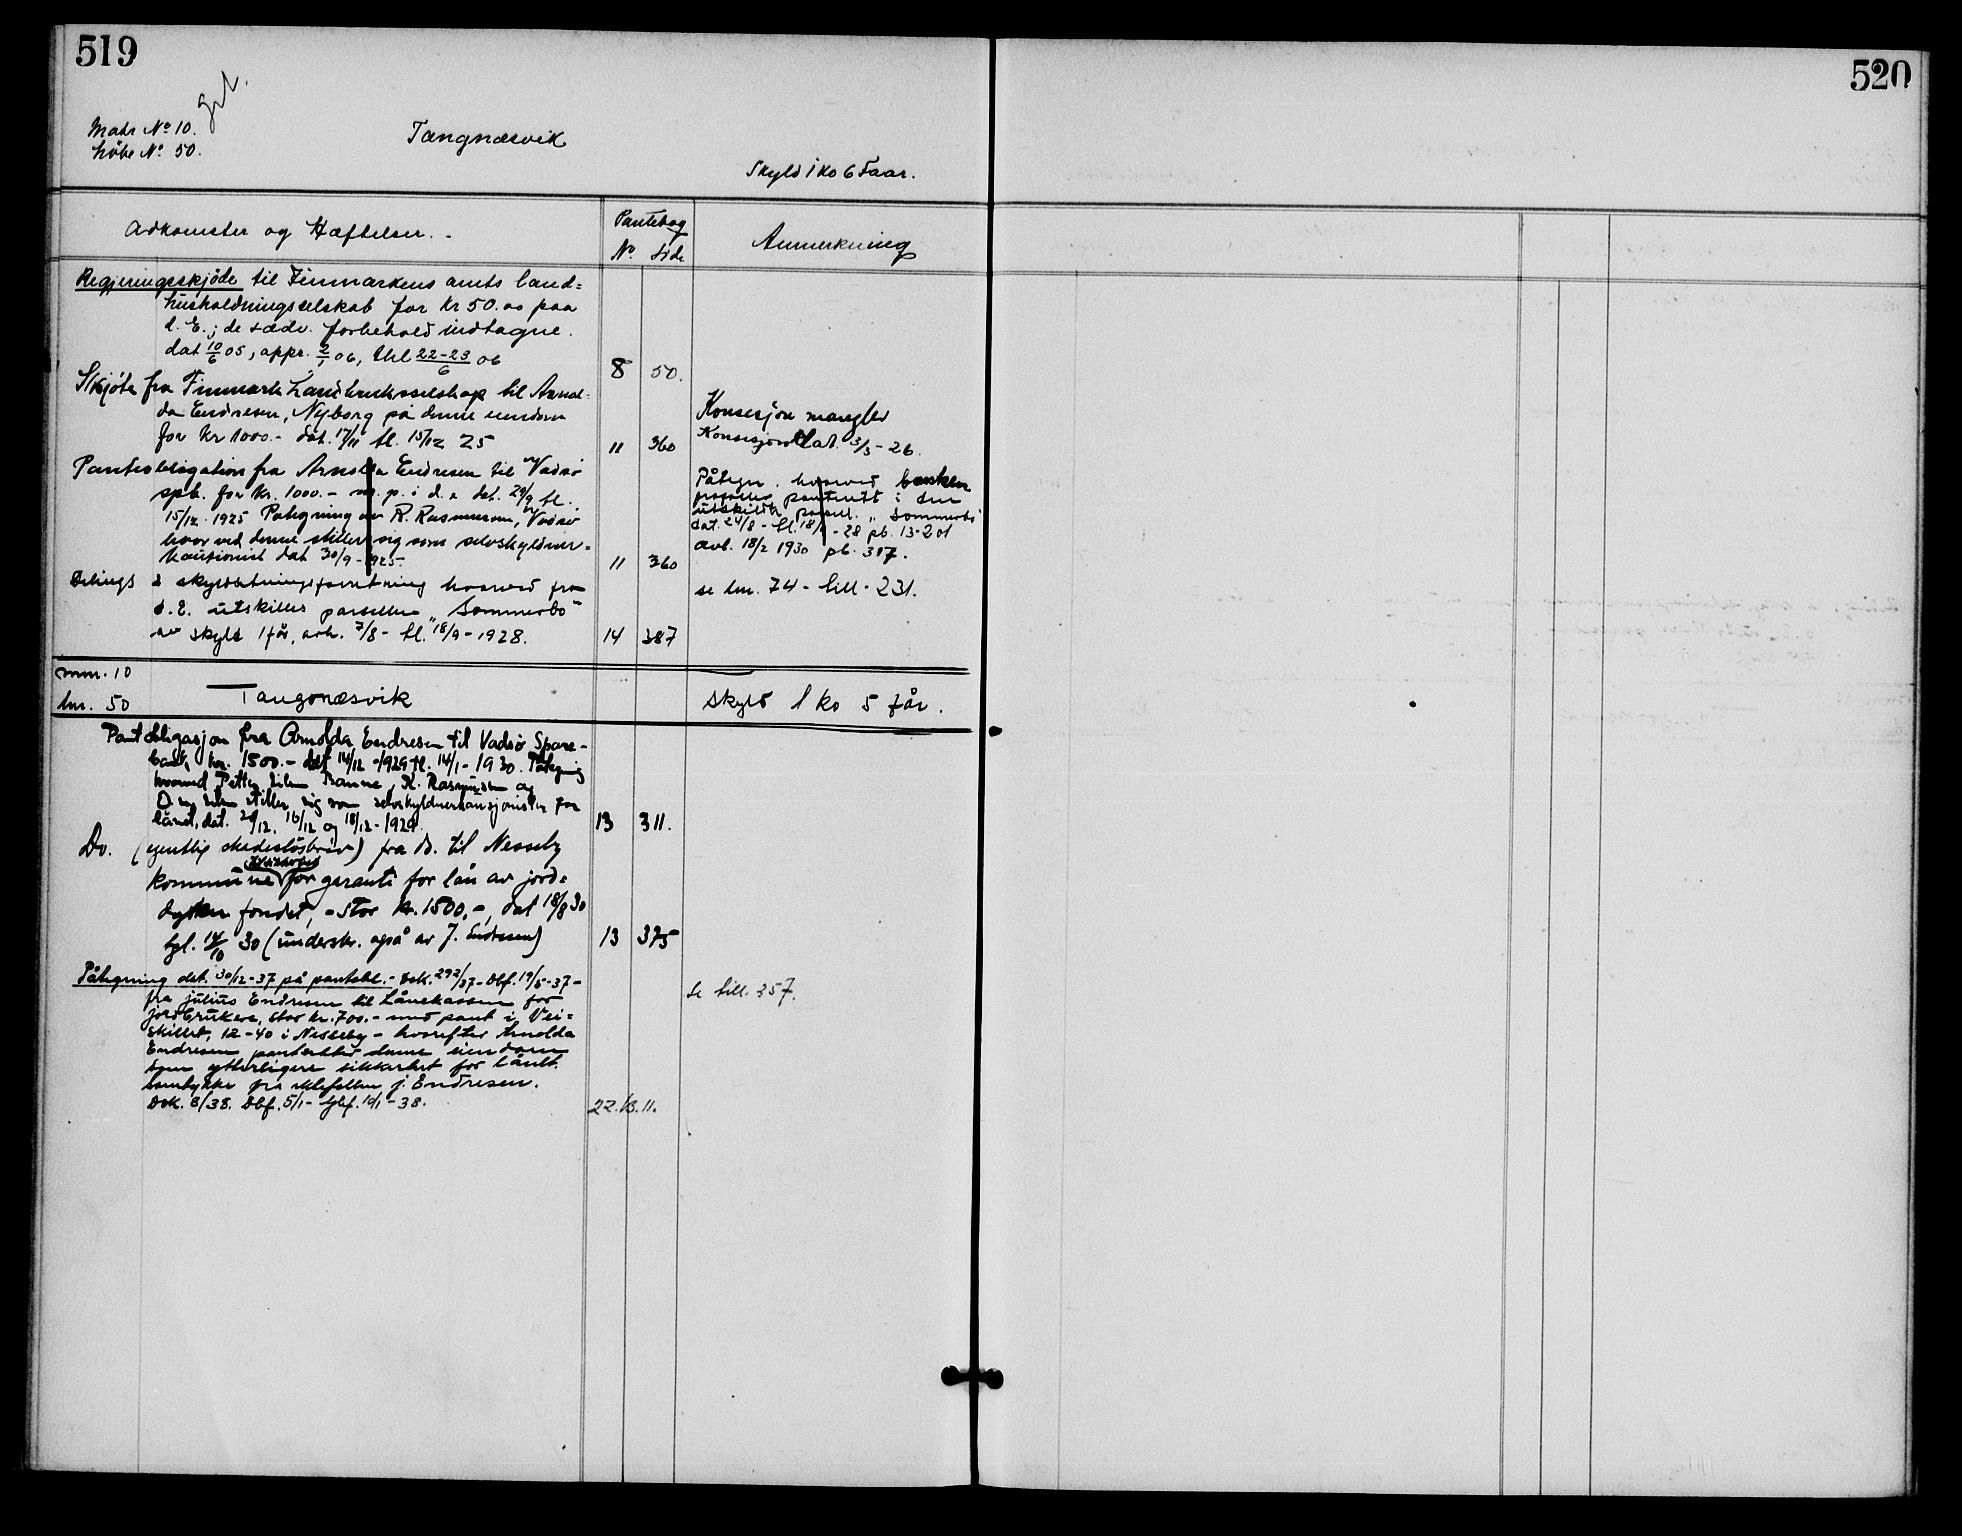 519
520
Matr No 10.
Løbe No 50.
Tangnæsvik
Skyld 1 ko 6 Faar.
Adkomster og Hæftelser.
Pantebog
No. Side
Anmerkning
Regjeringsskjøde til Finmarkens amts land=
husholdningsselskab for kr 50.00 paa
d. E.; de sædv. forbehold indtagne.
dat 10/6 05, appr. 2/1 06, thl 22-23/6 06
8 50.
Skjøte fra Finmark Landbruksselskap til Arnol=
da Endresen, Nyborg på denne eiendom
for kr 1000.- dat. 17/11 tl. 15/12 25
11 360
Konsesjon mangler
Konsesjon dat. 3/3-26.
Panteobligation fra Arnolda Endresen til Vadsø
spb. for kr. 1000.- m. p. i d. e dat. 29/9 tl.
15/12.1925 Påtegning av R. Rasmussen, Vadsø
hvorved denne stiller sig som selvskyldner=
kautionist dat 30/9-1925.
11 360
Påtegn. hvorved banken
frafaller panterett i den
utskilte parsell "Sommerbo"
dat. 24/8 - tl. 18/9 - 28 pb. 13-201
avl. 18/2 1930 pb. 317.
Delings & skyldsetningsforretning hvorved fra
d. E. utskilles parsellen "Sommerbo"
av skyld 1 får, avh. 7/8 - tl. 18/9 - 1928.
14 387
se lnr. 74 - till. 231.
mnr. 10
lnr. 50
Tangnæsvik
skyld 1 ko 5 får.
Pantobligasjon fra Arnolda Endresen til Vadsø Spare-
bank kr. 1500.- dat 14/12 -1929 tl. 14/1 - 1930. Påtegning
hvorved Petter Banne, R. Rasmussen og
stiller sig som selvskyldnerkausjonister for
lånet, dat. 16/12 og 18/12 - 1929.
13 311.
Do. (egentlig skadesløsbrev) fra do. til Nesseby
kommune for garanti for lån av jord=
dyrkn. fondet, - stor kr. 1500,-, dat 18/8 30
tgl. 14/10 30 (underskr. også av J. Endresen)
13 375
Påtegning dat. 30/12-37 på pantobl. - Dok. 292/37 - Dbf. 19/5-37 -
fra Julius Endresen til Lånekassen for
jordbrukere, stor kr. 700.- med pant i Vei=
skillet, 12-40 i Nesseby - hvorefter Arnolda
Endresen pantsetter denne eiendom
som ytterligere sikkerhet for lånet.
Samtykke fra ektefellen J. Endresen.
Dok. 8/38. Dbf. 5/1 - Gbf. 10/1 - 38.
22.13.11.
Se till. 357.